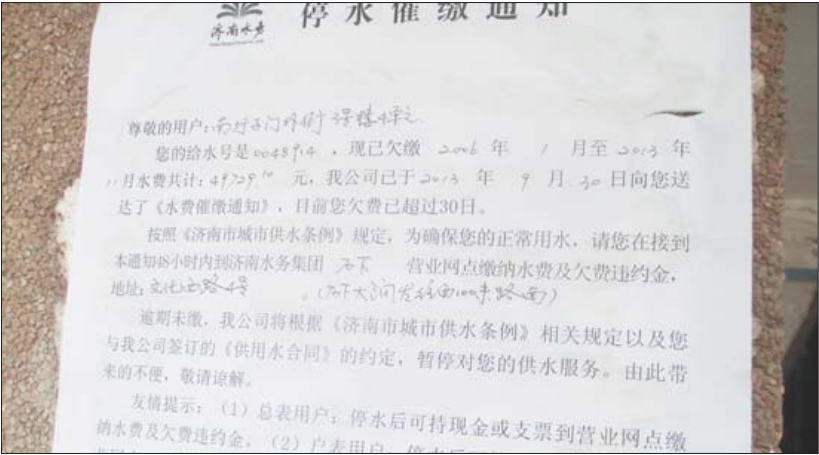 停水催缴通知
济南水务
尊敬的用户:
您的给水号是004894,现已欠缴 2006 年 1 月至 2013 年
11月水费共计:49729 元,我公司已于 2013 年 9 月 30 日向您送
达了《水费催缴通知》,目前您欠费已超过30日。
按照《济南市城市供水条例》规定,为确保您的正常用水,请您在接到
本通知48小时内到济南水务集团 历下 营业网点缴纳水费及欠费违约金,
地址:文化西路 号 。(历下大润发往西100米路南)
逾期未缴,我公司将根据《济南市城市供水条例》相关规定以及您
与我公司签订的《供用水合同》的约定,暂停对您的供水服务。由此带
来的不便,敬请谅解。
友情提示:(1)总表用户:停水后可持现金或支票到营业网点缴
纳水费及欠费违约金。(2)户表用户:停水后